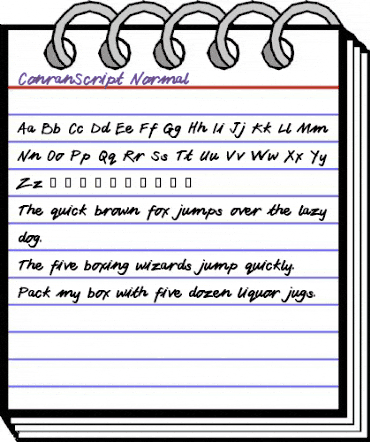 ConranScript Normal
Aa Bb Cc Dd Ee Ff Gg Hh Ii Jj Kk Ll Mm
Nn Oo Pp Qq Rr Ss Tt Uu Vv Ww Xx Yy
Zz □ □ □ □ □ □ □ □ □ □
The quick brown fox jumps over the lazy
dog.
The five boxing wizards jump quickly.
Pack my box with five dozen liquor jugs.